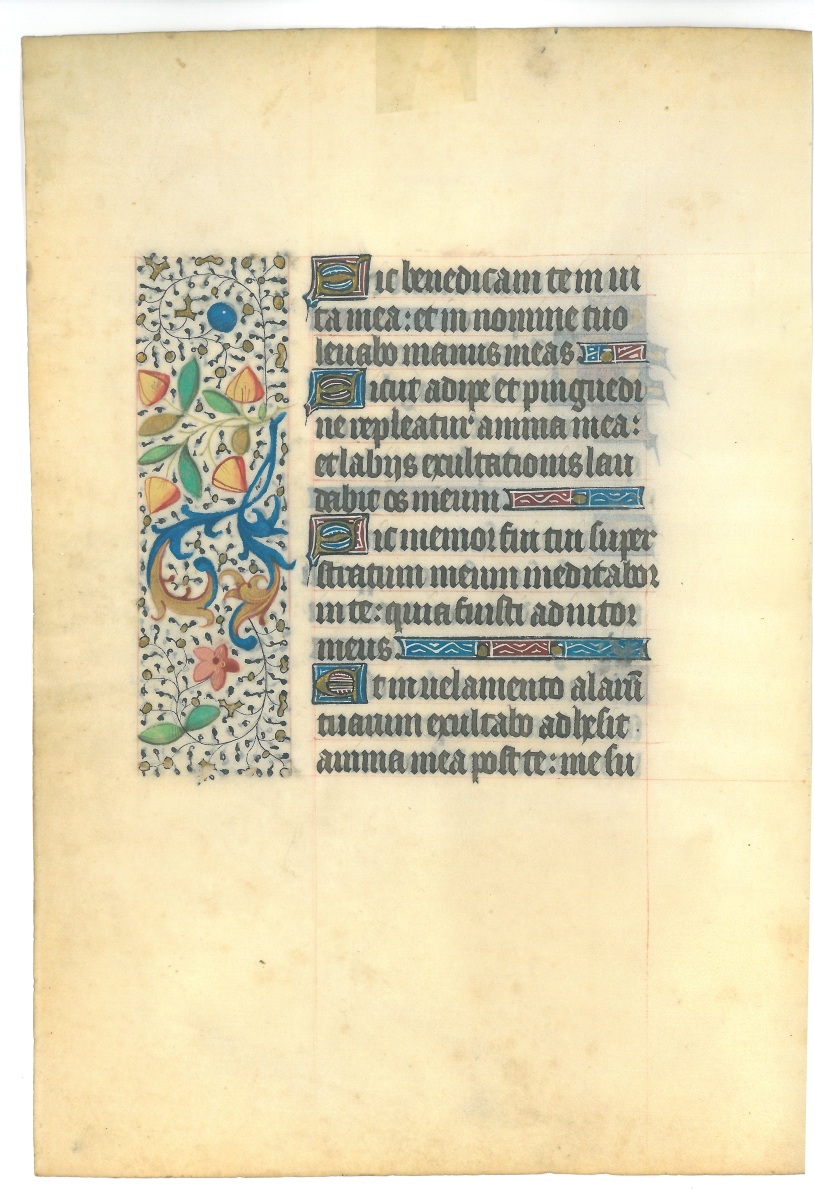 Sic benedicam te in ui
ta mea: et in nomine tuo
leuabo manus meas
Sicut adipe et pinguedi
ne repleatur anima mea:
et labijs exultationis lau
dabit os meum
Sic memor fui tui super
stratum meum meditabor
in te: quia fuisti adiutor
meus.
Et in uelamento alarū
tuarum exultabo adhesit
anima mea post te: me su